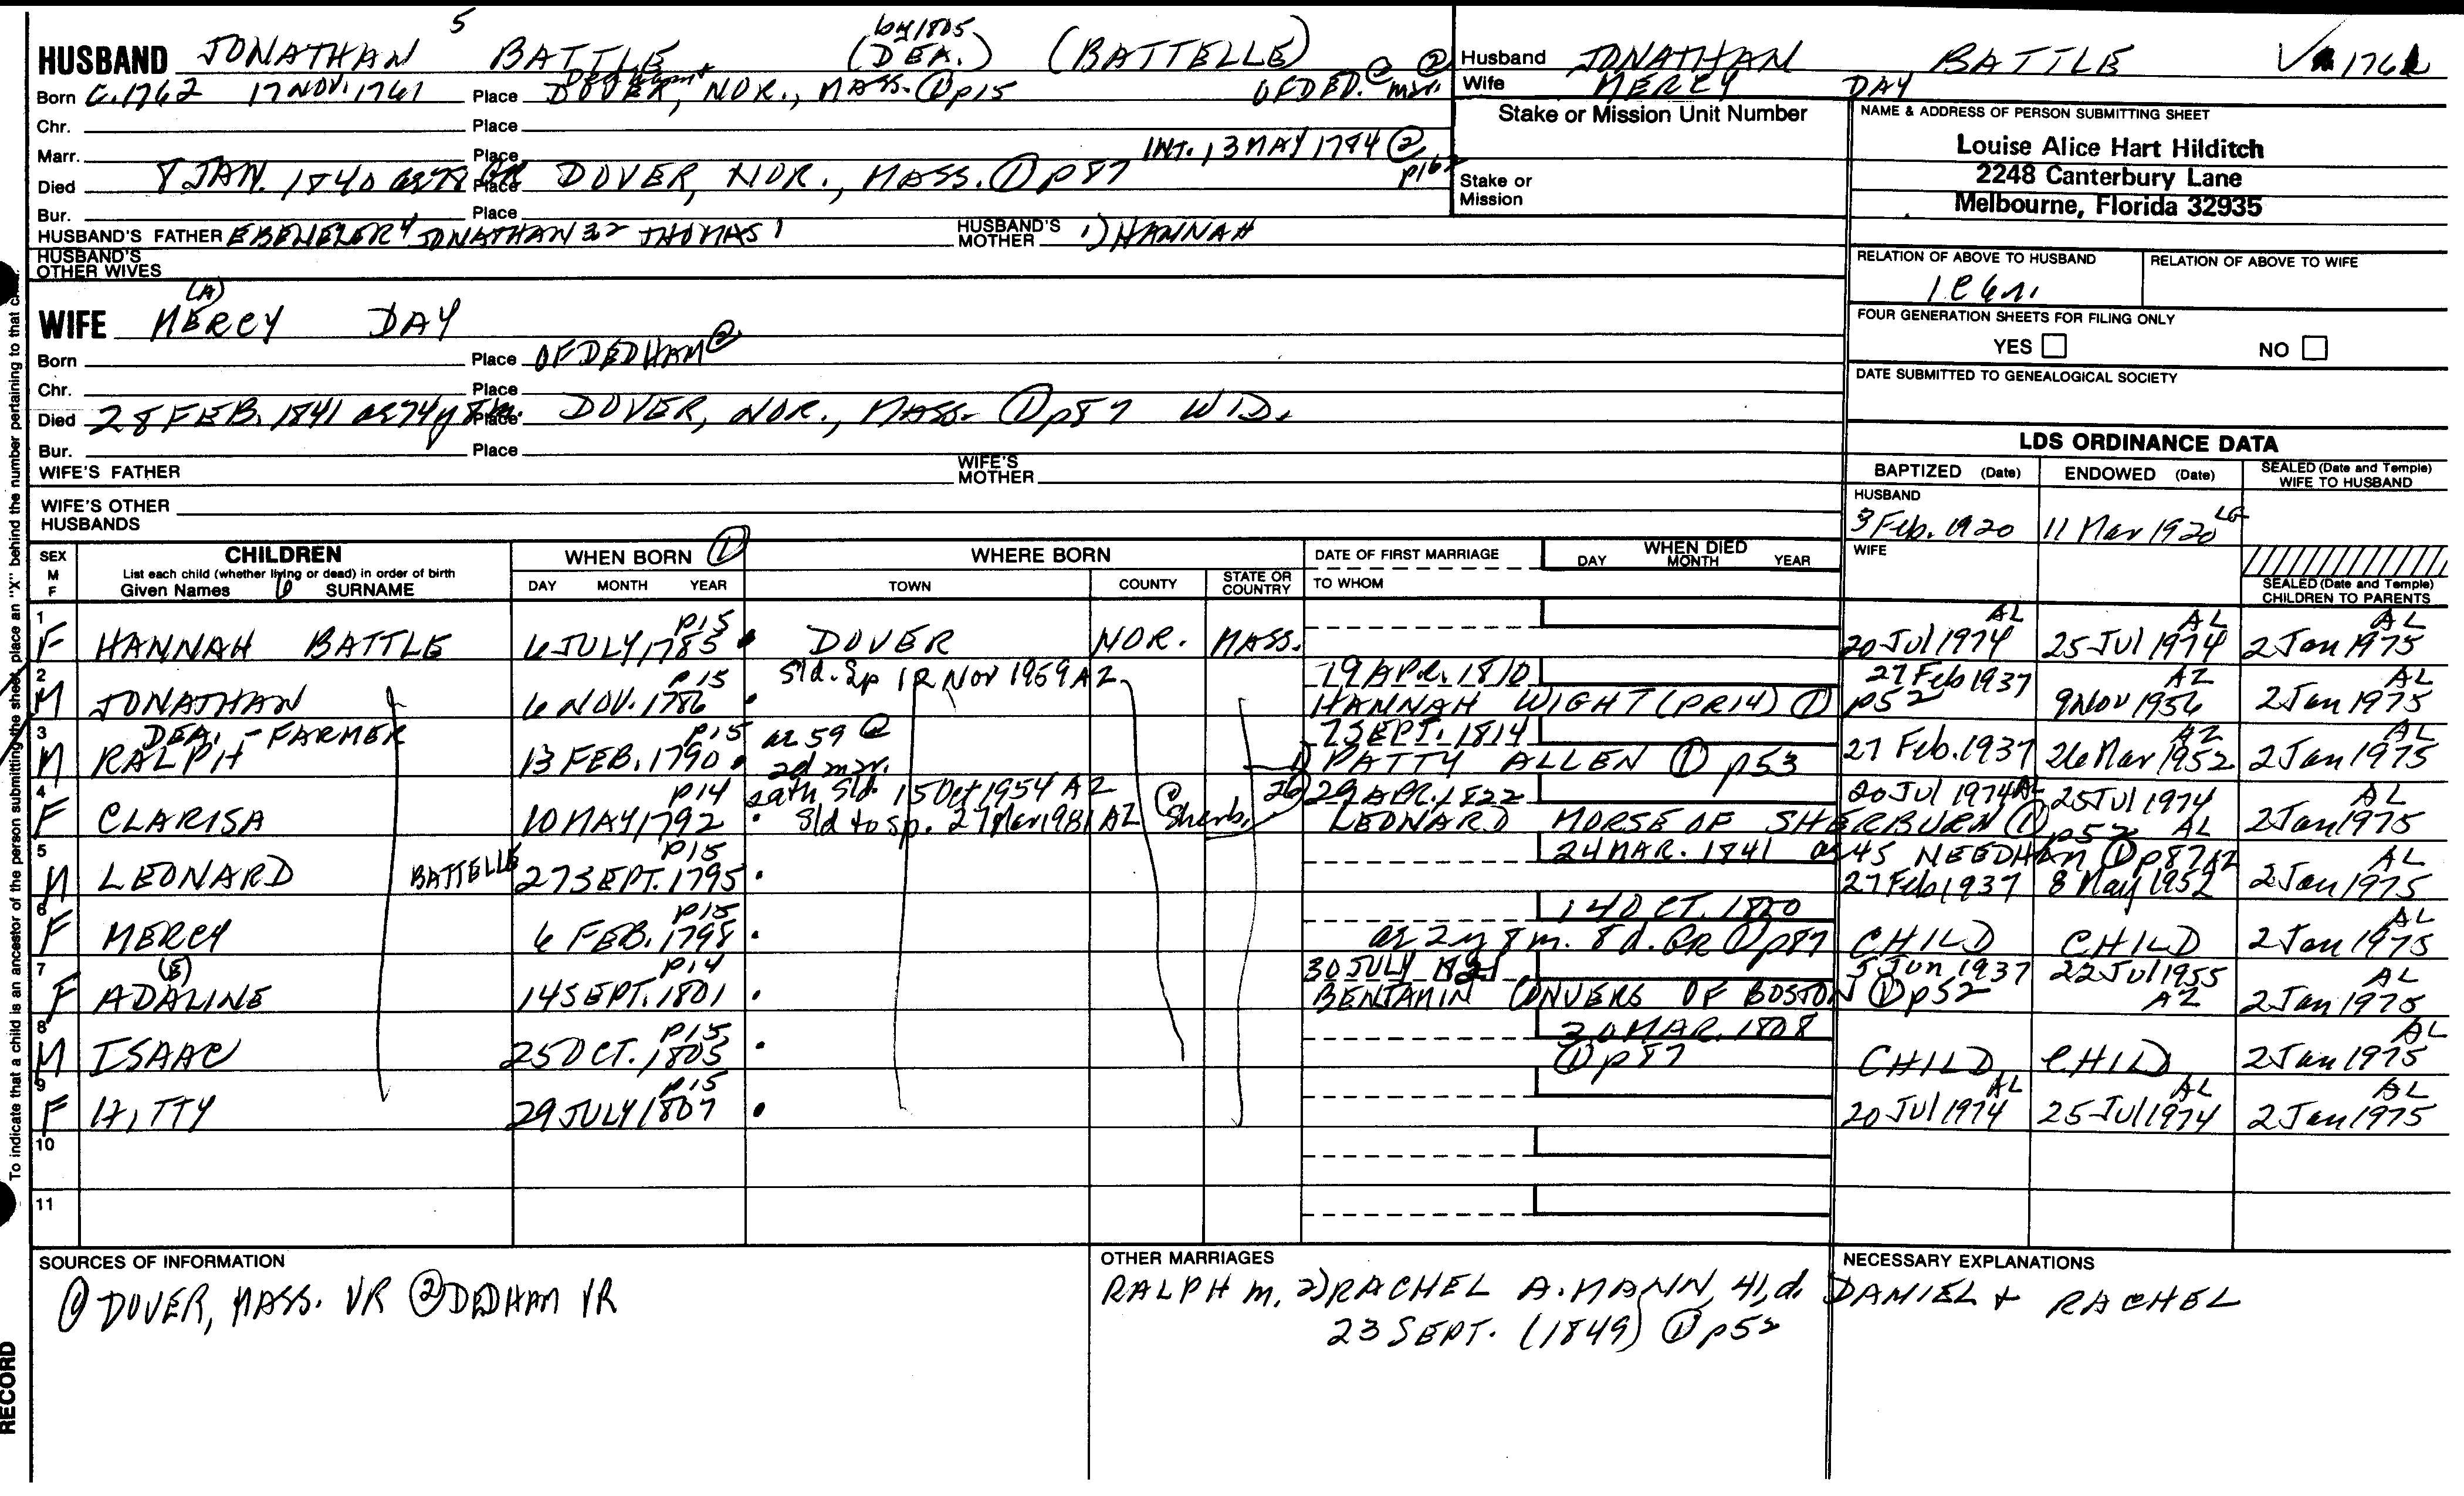 5 by 1805
HUSBAND JONATHAN BATTLE (DEA.) (BATTELLE)
Born C.1762 17 NOV. 1761 Place DOVER, NOR., MASS. ① p15 OF DED. @ mar. ②
Chr. Place
Marr. Place INT. 13 MAY 1784 ② p162
Died 8 JAN. 1840 Place DOVER, NOR., MASS. ① p87
Bur. Place
HUSBAND'S FATHER EBENEZER 4 JONATHAN 32 THOMAS 1 HUSBAND'S MOTHER 1) HANNAH
HUSBAND'S OTHER WIVES
(A)
WIFE MERCY DAY
Born Place OF DEDHAM ②
Chr. Place
Died 28 FEB. 1841 ae 74y Place DOVER, NOR., MASS. ① p87 WID.
Bur. Place
WIFE'S FATHER WIFE'S MOTHER
WIFE'S OTHER HUSBANDS
Husband JONATHAN BATTLE
Wife MERCY DAY
Stake or Mission Unit Number
Stake or Mission
NAME & ADDRESS OF PERSON SUBMITTING SHEET
Louise Alice Hart Hilditch
2248 Canterbury Lane
Melbourne, Florida 32935
RELATION OF ABOVE TO HUSBAND RELATION OF ABOVE TO WIFE
FOUR GENERATION SHEETS FOR FILING ONLY
YES NO
DATE SUBMITTED TO GENEALOGICAL SOCIETY
LDS ORDINANCE DATA
BAPTIZED (Date) ENDOWED (Date) SEALED (Date and Temple) WIFE TO HUSBAND
HUSBAND
3 Feb. 1920 11 Mar 1920 LG
WIFE
SEALED (Date and Temple) CHILDREN TO PARENTS
SEX M F CHILDREN WHEN BORN ① WHERE BORN DATE OF FIRST MARRIAGE WHEN DIED
List each child (whether living or dead) in order of birth
Given Names 6 SURNAME DAY MONTH YEAR TOWN COUNTY STATE OR COUNTRY TO WHOM DAY MONTH YEAR
1 p15 AL AL AL
F HANNAH BATTLE 6 JULY 1785 DOVER NOR. MASS. 20 Jul 1974 25 Jul 1974 2 Jan 1975
2 p15 Sld. Sp 12 Nov 1959 AZ 19 APR. 1810 27 Feb 1937 AZ AL
M JONATHAN 6 NOV. 1786 HANNAH WIGHT (PR14) ① p52 9 Nov 1956 2 Jan 1975
3 DEA. - FARMER p15 ae 59 @ 2d mar. 7 SEPT. 1814 AZ AL
M RALPH 13 FEB. 1790 1) PATTY ALLEN ① p53 27 Feb. 1937 26 Mar 1952 2 Jan 1975
4 p14 Sld. 15 Oct 1954 AZ 29 APR. 1822 20 Jul 1974 AL 25 Jul 1974 AL
F CLARISA 10 MAY 1792 Sld to sp. 27 Mar 1981 AZ @ Sherb. LEONARD MORSE OF SHERBURN ① p52 AL 2 Jan 1975
5 p15 24 MAR. 1841 ae 45 NEEDHAM ① p87 AZ AL
M LEONARD BATTELLE 27 SEPT. 1795 27 Feb 1937 8 May 1952 2 Jan 1975
6 p15 14 OCT. 1800 AL
F MERCY 6 FEB. 1798 ae 2y 8m. 8d. GR ① p87 CHILD CHILD 2 Jan 1975
7 (E) p14 30 JULY 1821 5 Jun 1937 22 Jul 1955 AL
F ADALINE 14 SEPT. 1801 BENJAMIN CONVERS OF BOSTON ① p52 AZ 2 Jan 1975
8 p15 30 MAR. 1808 AL
M ISAAC 25 OCT. 1805 ① p87 CHILD CHILD 2 Jan 1975
9 p15 AL AL AL
F HITTY 29 JULY 1807 20 Jul 1974 25 Jul 1974 2 Jan 1975
10
11
SOURCES OF INFORMATION
① DOVER, MASS. VR ② DEDHAM VR
OTHER MARRIAGES
RALPH m. 2) RACHEL A. MANN, 41, d. DANIEL + RACHEL
23 SEPT. (1849) ① p52
NECESSARY EXPLANATIONS
To indicate that a child is an ancestor of the person submitting the sheet, place an "X" behind the number pertaining to that
RECORD